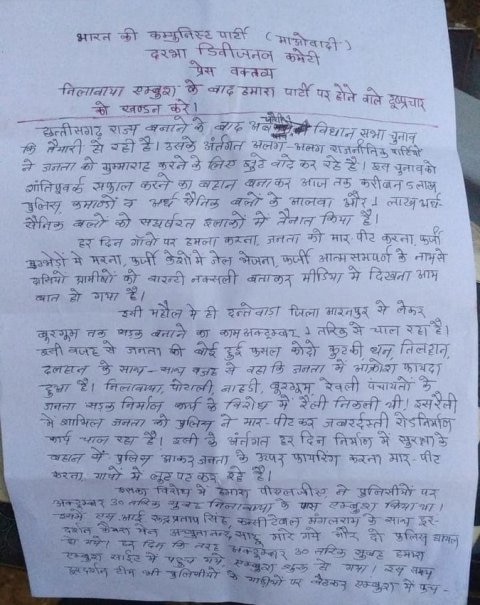 भारत की कम्युनिस्ट पार्टी (माओवादी)
दरभा डिवीजनल कमेटी
प्रेस वक्तव्य
निलावाया एम्बुश के बाद हमारा पार्टी पर होने वाले दूष्प्रचार
को खण्डन करें।
छत्तीसगढ़ राज्य बनाने के बाद अब चौथीबार विधान सभा चुनाव
कि तैयारी हो रही है। उसके अंतर्गत अलग-अलग राजनीतिक पार्टियों
ने जनता को गुमराह करने के लिए झुटे वादे कर रहे है। इस चुनाव को
शांतिपूर्वक सफल करने का बहाना बनाकर आज तक करीबन 5 लाख
पुलिस, कमाण्डो व अर्ध सैनिक बलों के अलावा और 1 लाख अर्ध
सैनिक बलों को संघर्षरत इलाकों में तैनात किया है।
हर दिन गाँवों पर हमला करना, जनता को मार पीट करना, फर्जी
मुठभेड़ों में मरना, फर्जी केशों में जेल भेजना, फर्जी आत्म समर्पण के नाम से
ग्रामिणों को वारन्टी नक्सली बताकर मीडिया में दिखाना आम
बात हो गया है।
इसी माहौल में ही दन्तेवाडा जिला आरनपुर से लेकर
बुरगुम तक सडक बनाने का काम अक्टुम्बर 1 तारिक से चाल रहा है।
इसी वजह से जनता की बोई हुई फसल कोदो कुटकी धान, तिलहन,
दलहन के साथ-साथ वजह से वहा कि जनता में आक्रोश फायदा
हुआ है। निलावाया, पोटाली, नाहडी, बुरगुम, रेवली पंचायतों के
जनता सडक निर्माण कार्य के विरोध में रैली निकली थी। इस रैली
में शामिल जनता को पुलिस ने मार-पीट कर जबरदस्ती रोड निर्माण
कार्य चाल रहा है। इसी के अंतर्गत हर दिन निर्माण में सुरक्षा के
बहाने में पुलिस आकर जनता के ऊपर फायरिंग करना मार-पीट
करना, गावों में लूट पट कर रहे है।
इसका विरोध में हमारा पीएलजीए ने पुलिसीयों पर
अक्टुम्बर 30 तारिक सुबह निलावाया के पास एम्बुश किया था।
इसमें एस.आई रुद्रप्रताप सिंह, कन्स्टेबल मंगलराम के साथ दूर-
दर्शन कैमरा मेन अच्युतानन्द साहू मारे गये और दो पुलिस घायल
हो गये। हर दिन कि तरह अक्टुम्बर 30 तारिक सुबह हमारा
एम्बुश साईट में पहुच गये एम्बुश शुरू हो गया। इस समय
दूरदर्शन टीम भी पुलिसीयों के गाडीयों पर बैठकर एम्बुश में फंस-